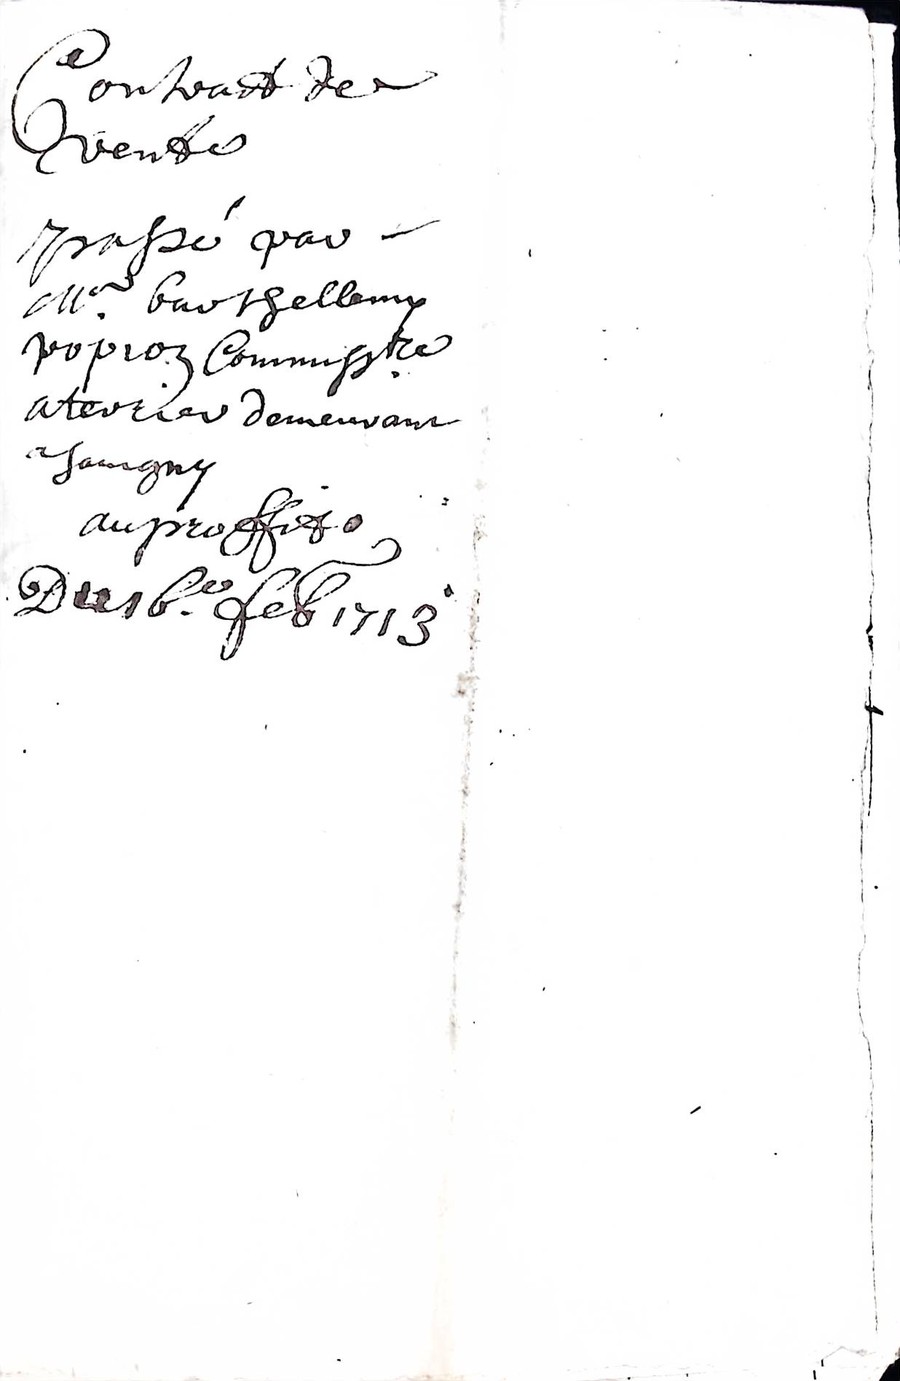 Contract de
vente
passé par
Mr. barthellemy
popioz Commissre
aterrier demeurant
a Savigny
au proffit
Du 16.e feb 1713